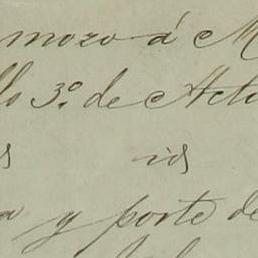 moro á M
llo 3º. de Actu
s id
a y porte de